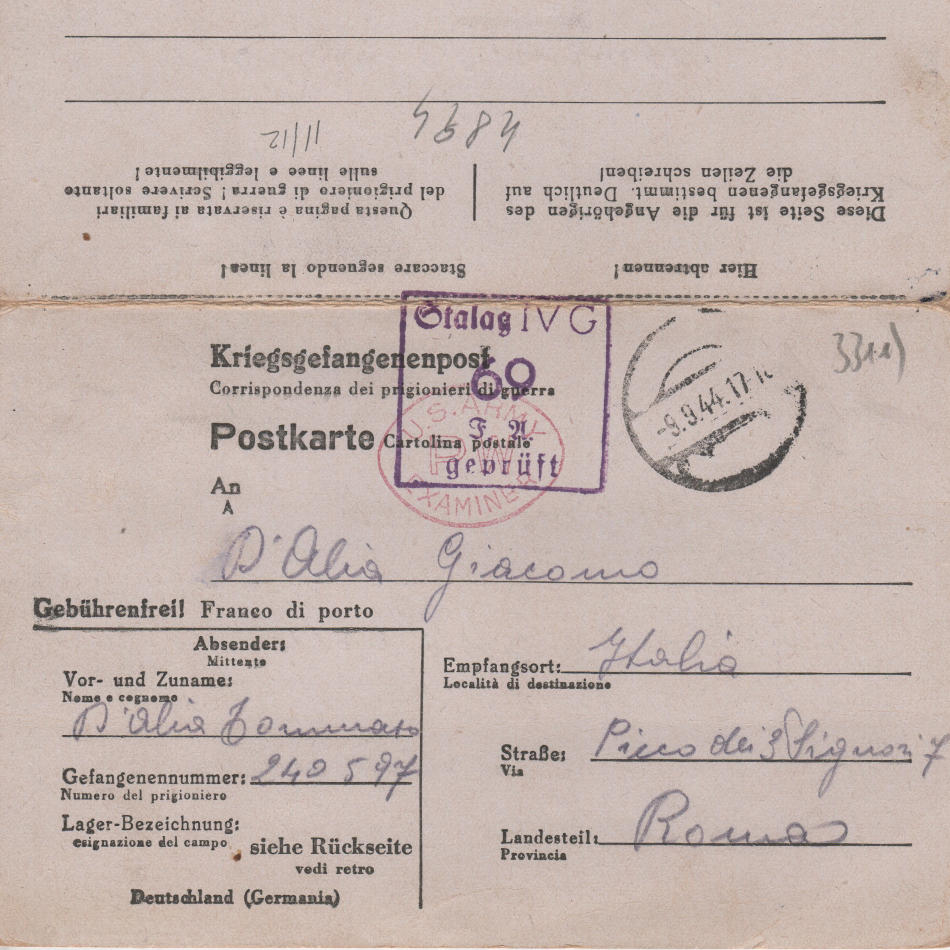 4884
11/12
Diese Seite ist für die Angehörigen des
Kriegsgefangenen bestimmt. Deutlich auf
die Zeilen schreiben!
Questa pagina è riservata ai familiari
del prigioniero di guerra! Scrivere soltanto
sulle linee e leggibilmente!
Hier abtrennen!
Staccare seguendo la linea!
Stalag IV G
60
geprüft
U.S. ARMY
P W
EXAMINER
-9.9.44.17-
Kriegsgefangenenpost
Corrispondenza dei prigionieri di guerra
Postkarte Cartolina postale
An
A
D'Alia Giacomo
Gebührenfrei! Franco di porto
Absender:
Mittente
Vor- und Zuname:
Nome e cognome
D'Alia Tommaso
Gefangenennummer: 240597
Numero del prigioniero
Lager-Bezeichnung:
esignazione del campo
siehe Rückseite
vedi retro
Deutschland (Germania)
Empfangsort: Italia
Località di destinazione
Straße: dei 3 Signori 7
Via
Landesteil: Roma
Provincia